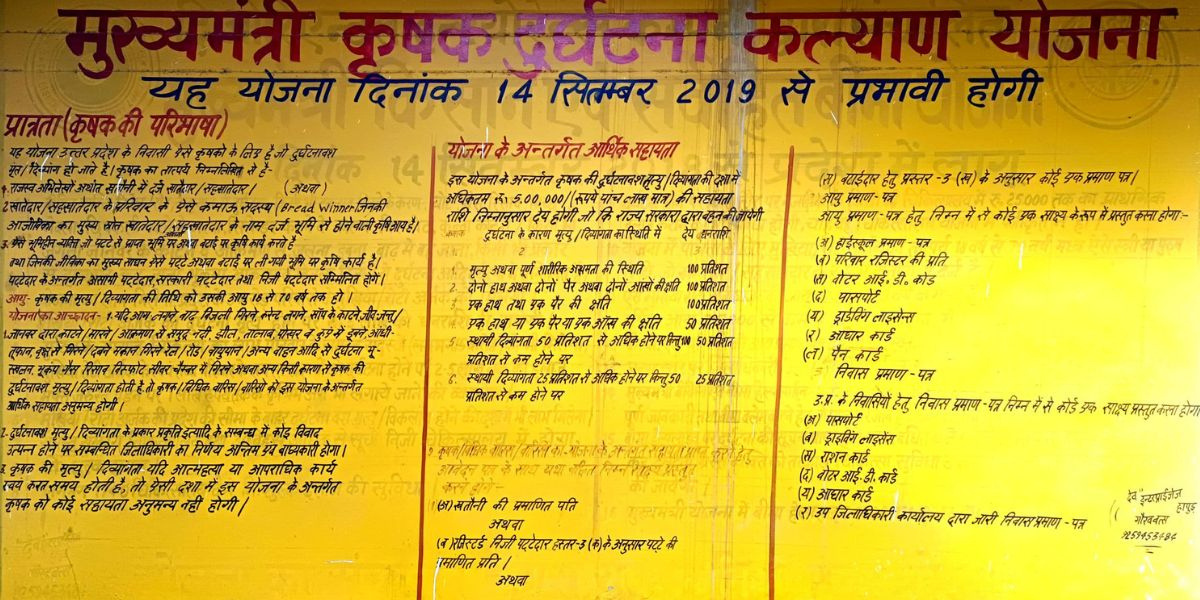 मुख्यमंत्री कृषक दुर्घटना कल्याण योजना
यह योजना दिनांक 14 सितम्बर 2019 से प्रभावी होगी
प्रात्रता (कृषक की परिभाषा)
यह योजना उत्तर प्रदेश के निवासी ऐसे कृषको के लिए है जो दुर्घटनावश
मृत/दिव्यांग हो जाते है। कृषक का तात्पर्य निम्नलिखित से है-
1. राजस्व अभिलेखो अर्थात खतौनी में दर्ज खातेदार/सहखातेदार। (अथवा)
2. खातेदार/सहखातेदार के परिवार के ऐसे कमाऊ सदस्य (Bread Winner जिनकी
आजीविका का मुख्य स्रोत खातेदार/सहखातेदार के नाम दर्ज भूमि से होने वाली कृषि आय है।
3. ऐसे भूमिहीन व्यक्ति जो पट्टे से प्राप्त भूमि पर अथवा बटाई पर कृषि कार्य करते है
तथा जिनकी जीविका का मुख्य साधन ऐसे पट्टे अथवा बटाई पर ली गयी भूमि पर कृषि कार्य है।
पट्टेदार के अन्तर्गत असामी पट्टेदार, सरकारी पट्टेदार तथा निजी पट्टेदार सम्मिलित होगे।
आयु- कृषक की मृत्यु/दिव्यांगता की तिथि को उसकी आयु 18 से 70 वर्ष तक हो।
योजना का आच्छादन- 1-यदि आग लगने, बाढ़, बिजली गिरने, करेन्ट लगने, साँप के काटने, जीव-जन्तु/
जानवर द्वारा काटने/मारने/आक्रमण से समुद्र, नदी, झील, तालाब, पोखर व कुएँ में डूबने आंधी-
तूफान, वृक्ष से गिरने/दबने मकान गिरने रेल/रोड/वायुयान/अन्य वाहन आदि से दुर्घटना भू-
स्खलन भूकम्प गैस रिसाव विस्फोट सीवर चैम्बर में गिरने अथवा अन्य किसी कारण से कृषक की
दुर्घटनावश मृत्यु/दिव्यांगता होती है, तो कृषक/विधिक वारिस/वारिसो को इस योजना के अन्तर्गत
आर्थिक सहायता अनुमन्य होगी।
2. दुर्घटनावश मृत्यु/दिव्यांगता के प्रकार प्रकृति इत्यादि के सम्बन्ध में कोई विवाद
उत्पन्न होने पर सम्बन्धित जिलाधिकारी का निर्णय अन्तिम एवं बाध्यकारी होगा।
3. कृषक की मृत्यु/दिव्यांगता यदि आत्महत्या या आपराधिक कार्य
स्वयं करते समय होती है, तो ऐसी दशा में इस योजना के अन्तर्गत
कृषक को कोई सहायता अनुमन्य नही होगी।
योजना के अन्तर्गत आर्थिक सहायता
इस योजना के अन्तर्गत कृषक की दुर्घटनावश मृत्यु/दिव्यांगता की दशा में
अधिकतम रु० 5,00,000/(रूपये पांच लाख मात्र) की सहायता
राशि निम्नानुसार देय होगी जो कि राज्य सरकार द्वारा वहन की जायेगी
दुर्घटना के कारण मृत्यु/दिव्यांगता का स्थिति में देय धनराशि
2 3
1. मृत्यु अथवा पूर्ण शारीरिक अक्षमता की स्थिति 100 प्रतिशत
2. दोनो हाथ अथवा दोनो पैर अथवा दोनो आखों की क्षति 100 प्रतिशत
3. एक हाथ तथा एक पैर की क्षति 100 प्रतिशत
4. एक हाथ या एक पैर या एक आँख की क्षति 50 प्रतिशत
5. स्थायी दिव्यांगता 50 प्रतिशत से अधिक होने पर किन्तु 100 50 प्रतिशत
प्रतिशत से कम होने पर
6. स्थायी दिव्यांगता 25 प्रतिशत से अधिक होने पर किन्तु 50 25 प्रतिशत
प्रतिशत से कम होने पर
कृषक/विधिक वारिस/वारिसो को योजना के अन्तर्गत सहायता प्राप्त करने हेतु
आवेदन पत्र के साथ निम्न साक्ष्य प्रस्तुत
करने होगे-
(अ) खतौनी की प्रमाणित प्रति
अथवा
(ब) रजिस्टर्ड निजी पट्टेदार प्रस्तर-3 (क) के अनुसार पट्टे की
प्रमाणित प्रति।
अथवा
(स) बटाईदार हेतु प्रस्तर-3 (ख) के अनुसार कोई एक प्रमाण पत्र।
आयु प्रमाण-पत्र
आयु प्रमाण-पत्र हेतु निम्न में से कोई एक साक्ष्य के रूप में प्रस्तुत करना होगा:-
(अ) हाईस्कूल प्रमाण-पत्र
(ब) परिवार रजिस्टर की प्रति
(स) वोटर आई.डी. कार्ड
(द) पासपोर्ट
(य) ड्राईविंग लाइसेन्स
(र) आधार कार्ड
(ल) पैन कार्ड
3 निवास प्रमाण-पत्र
उ.प्र. के निवासियों हेतु निवास प्रमाण-पत्र निम्न में से कोई एक साक्ष्य प्रस्तुत करना होगा
(अ) पासपोर्ट
(ब) ड्राईविंग लाइसेंस
(स) राशन कार्ड
(द) वोटर आई.डी. कार्ड
(य) आधार कार्ड
(र) उप जिलाधिकारी कार्यालय द्वारा जारी निवास प्रमाण-पत्र
देव इन्टरप्राईजेज
हापुड़
गौरव वत्स
9259453484